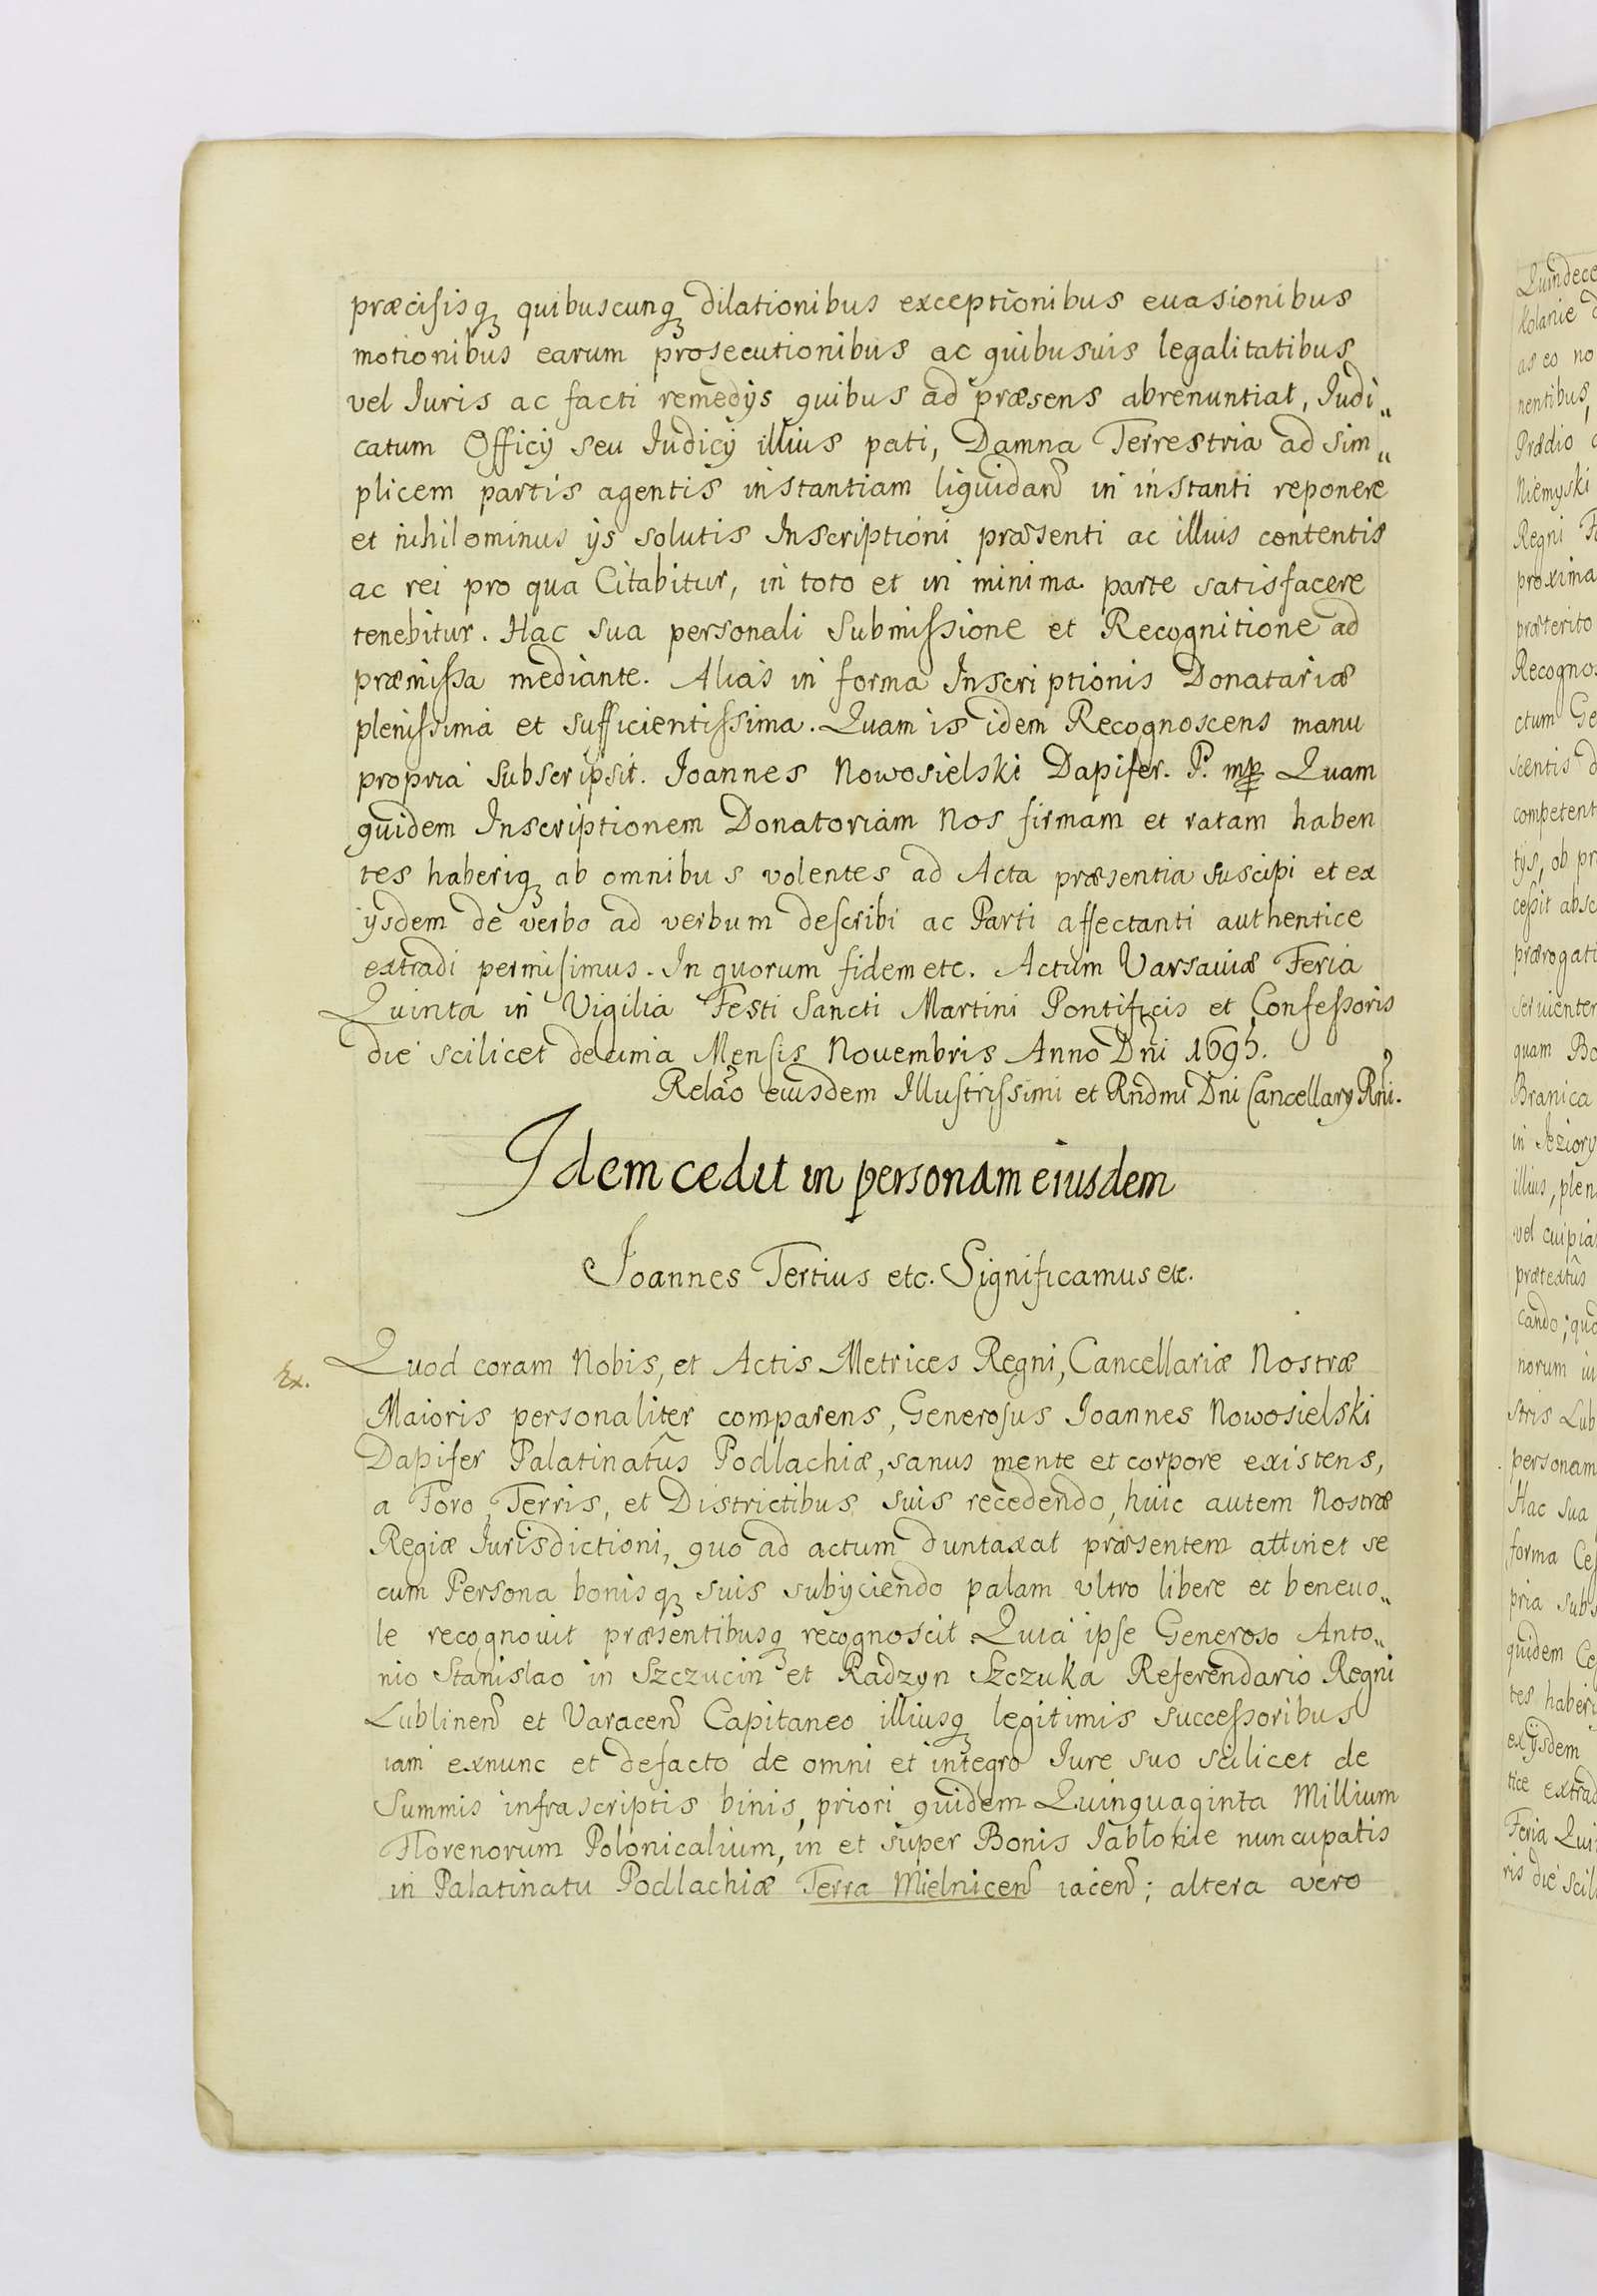 præcisisq quibuscunq dilationibus exceptionibus euasionibus
motionibus earum prosecutionibus ac quibusuis legalitatibus
vel Iuris ac facti remedÿs quibus ad præsens abrenuntiat, Iudi„
catum Officÿ seu Iudicÿ illius pati, Damna Terrestria ad sim„
plicem partis agentis instantiam liquidand in instanti reponere
et nihilominus ÿs solutis Inscriptioni præsenti ac illius contentis
ac rei pro qua Citabitur, in toto et in minima parte satisfacere
tenebitur. Hac sua personali submissione et Recognitione ad
præmissa mediante. Alias in forma Inscriptionis Donatariæ
plenissima et sufficientissima. Quam is idem Recognoscens manu
propria subscripsit. Joannes Nowosielski Dapifer. P. mp Quam
quidem Inscriptionem Donatoriam Nos firmam et ratam haben
tes haberiq ab omnibus volentes ad Acta præsentia suscipi et ex
ÿsdem de verbo ad verbum describi ac Parti affectanti authentice
extradi permisimus. In quorum fidem etc. Actum Varsauiæ Feria
Quinta in Vigilia Festi Sancti Martini Pontificis et Confessoris
die scilicet decima Mensis Nouembris Anno Dni 1695.
Relao eiusdem Illustrissimi et Rndmi Dni Cancellarÿ Rni.
Idem cedit in personam eiusdem
Joannes Tertius etc. Significamus etc.
Ex. Quod coram Nobis, et Actis Metrices Regni, Cancellariæ Nostræ
Maioris personaliter comparens, Generosus Joannes Nowosielski
Dapifer Palatinatûs Podlachiæ, sanus mente et corpore existens,
a Foro, Terris, et Districtibus suis recedendo, huic autem Nostræ
Regiæ Iurisdictioni, quo ad actum duntaxat præsentem attinet se
cum Persona bonisq suis subÿciendo palam vltro libere et beneuo„
le recognouit præsentibusq recognoscit. Quia ipse Generoso Anto„
nio Stanislao in Szczucin et Radzyn Szczuka Referendario Regni
Lublinen et Varacen Capitaneo illiusq legitimis successoribus
iam exnunc et defacto de omni et integro Iure suo scilicet de
Summis infrascriptis binis, priori quidem Quinquaginta Millium
Florenorum Polonicalium, in et super Bonis Jabłonie nuncupatis
in Palatinatu Podlachiæ Terra Mielnicen iacen; altera vero